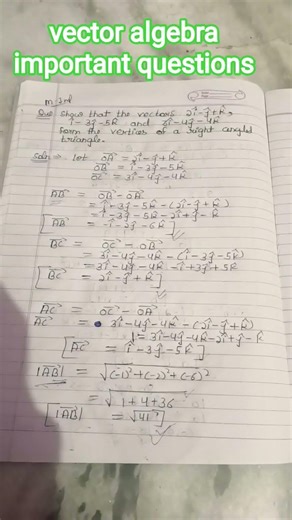 vector algebra
important questions
Que show that the vectors 2î-ĵ+k̂,
î-3ĵ-5k̂ and 3î-4ĵ-4k̂
form the vertices of a right angled
triangle.
Soln ⇒ Let OA→ = 2î-ĵ+k̂
OB→ = î-3ĵ-5k̂
OC→ = 3î-4ĵ-4k̂
AB→ = OB→ - OA→
= î-3ĵ-5k̂-(2î-ĵ+k̂)
= î-3ĵ-5k̂-2î+ĵ-k̂
[AB→ = -î-2ĵ-6k̂]
BC→ = OC→ - OB→
= 3î-4ĵ-4k̂-(î-3ĵ-5k̂)
= 3î-4ĵ-4k̂-î+3ĵ+5k̂
[BC→ = 2î-ĵ+k̂]
AC→ = OC→ - OA→
AC→ = 3î-4ĵ-4k̂-(2î-ĵ+k̂)
= 3î-4ĵ-4k̂-2î+ĵ-k̂
[AC→ = î-3ĵ-5k̂]
|AB→| = √(-1)²+(-2)²+(-6)²
= √1+4+36
[|AB→| = √41]